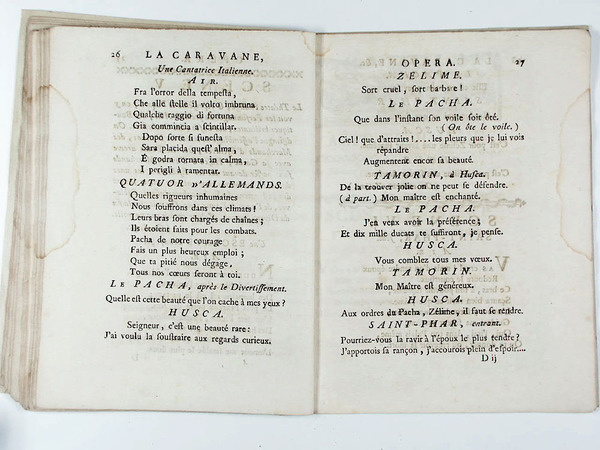 26 LA CARAVANE,
Une Cantatrice Italienne.
AIR.
Fra l'orror della tempesta,
Che alle stelle il volto imbruna,
Qualche raggio di fortuna
Gia commincia a scintillar.
Dopo sorte si funesta
Sara placida quest' alma,
E godra tornata in calma,
I perigli à ramentar.
QUATUOR D'ALLEMANDS.
Quelles rigueurs inhumaines
Nous souffrons dans ces climats!
Leurs bras sont chargés de chaînes;
Ils étoient faits pour les combats.
Pacha de notre courage
Fais un plus heureux emploi;
Que ta pitié nous dégage,
Tous nos cœurs seront à toi.
LE PACHA, après le Divertissement.
Quelle est cette beauté que l'on cache à mes yeux?
HUSCA.
Seigneur, c'est une beauté rare:
J'ai voulu la soustraire aux regards curieux.
OPERA. 27
ZÉLIME.
Sort cruel, sort barbare!
LE PACHA.
Que dans l'instant son voile soit ôté.
(On ôte le voile.)
Ciel! que d'attraits!....les pleurs que je lui vois
répandre
Augmentent encor sa beauté.
TAMORIN, à Husca.
De la trouver jolie on ne peut se défendre.
(à part.) Mon maître est enchanté.
LE PACHA.
J'en veux avoir la préférence;
Et dix mille ducats te suffiront, je pense.
HUSCA.
Vous comblez tous mes vœux.
TAMORIN.
Mon Maître est généreux.
HUSCA.
Aux ordres du Pacha, Zélime, il faut se rendre.
SAINT-PHAR, entrant.
Pourriez-vous la ravir à l'époux le plus tendre?
J'apportois sa rançon, j'accourois plein d'espoir....
D ij